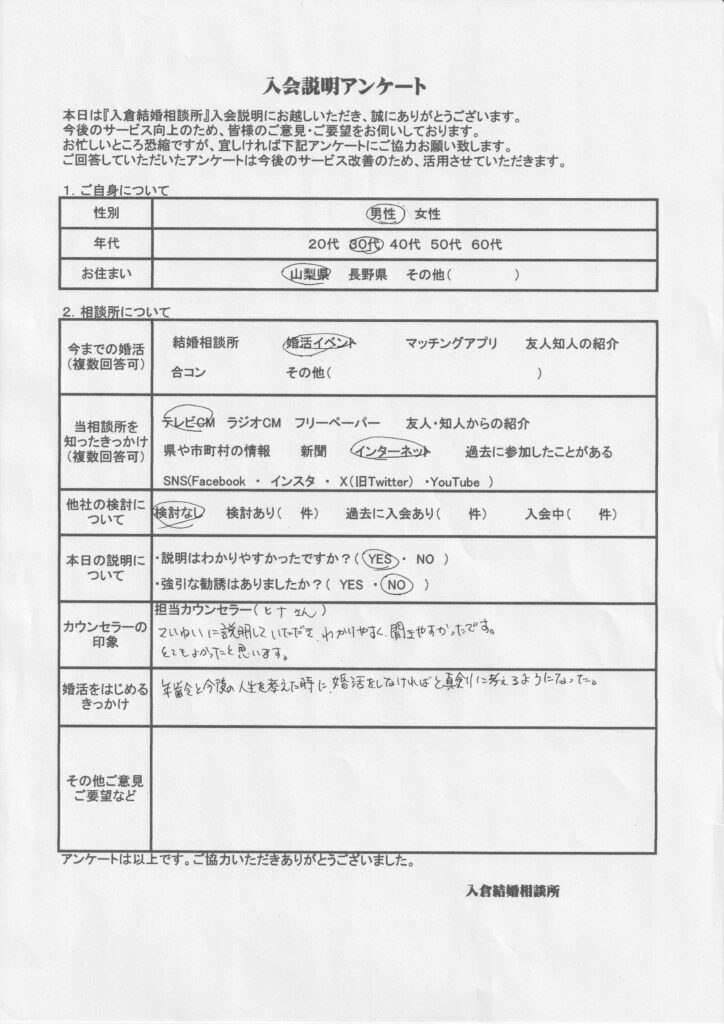 入会説明アンケート
本日は『入倉結婚相談所』入会説明にお越しいただき、誠にありがとうございます。
今後のサービス向上のため、皆様のご意見・ご要望をお伺いしております。
お忙しいところ恐縮ですが、宜しければ下記アンケートにご協力お願い致します。
ご回答していただいたアンケートは今後のサービス改善のため、活用させていただきます。
1. ご自身について
性別 男性 女性
年代 20代 30代 40代 50代 60代
お住まい 山梨県 長野県 その他( )
2. 相談所について
今までの婚活
(複数回答可)
結婚相談所 婚活イベント マッチングアプリ 友人知人の紹介
合コン その他( )
当相談所を
知ったきっかけ
(複数回答可)
テレビCM ラジオCM フリーペーパー 友人・知人からの紹介
県や市町村の情報 新聞 インターネット 過去に参加したことがある
SNS(Facebook ・ インスタ ・ X(旧Twitter) ・YouTube )
他社の検討に
ついて
検討なし 検討あり( 件) 過去に入会あり( 件) 入会中( 件)
本日の説明に
ついて
・説明はわかりやすかったですか?( YES ・ NO )
・強引な勧誘はありましたか?( YES ・ NO )
カウンセラーの
印象
担当カウンセラー( ヒナ さん )
ていねいに説明していただき、わかりやすく、聞きやすかったです。
とてもよかったと思います。
婚活をはじめる
きっかけ
年齢と今後の人生を考えた時に、婚活をしなければと真剣に考えるようになった。
その他ご意見
ご要望など
アンケートは以上です。ご協力いただきありがとうございました。
入倉結婚相談所